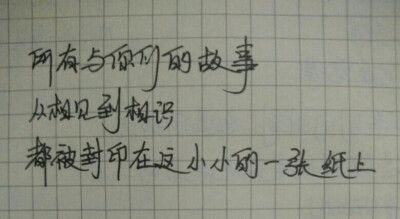 所有与你们的故事
从相见到相识
都被封印在这小小的一张纸上